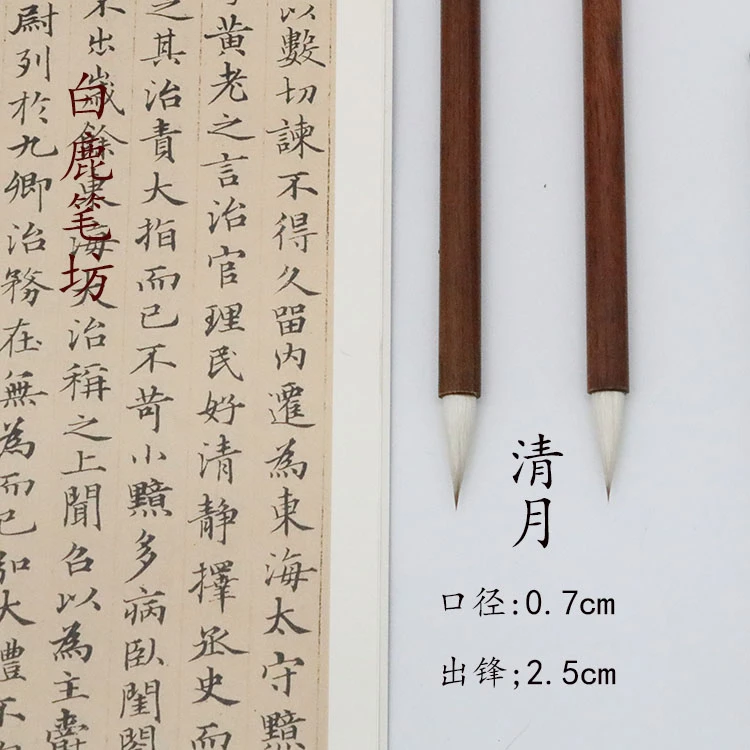 以數切諫不得久留内遷為東海太守黯
黃老之言治官理民好清靜擇丞史而
之其治責大指而已不苛小黯多病臥閨閤
不出歲餘東海大治稱之上聞召以為主爵
尉列於九卿治務在無為而已弘大體不
白鹿笔坊
清月
口径:0.7cm
出锋;2.5cm